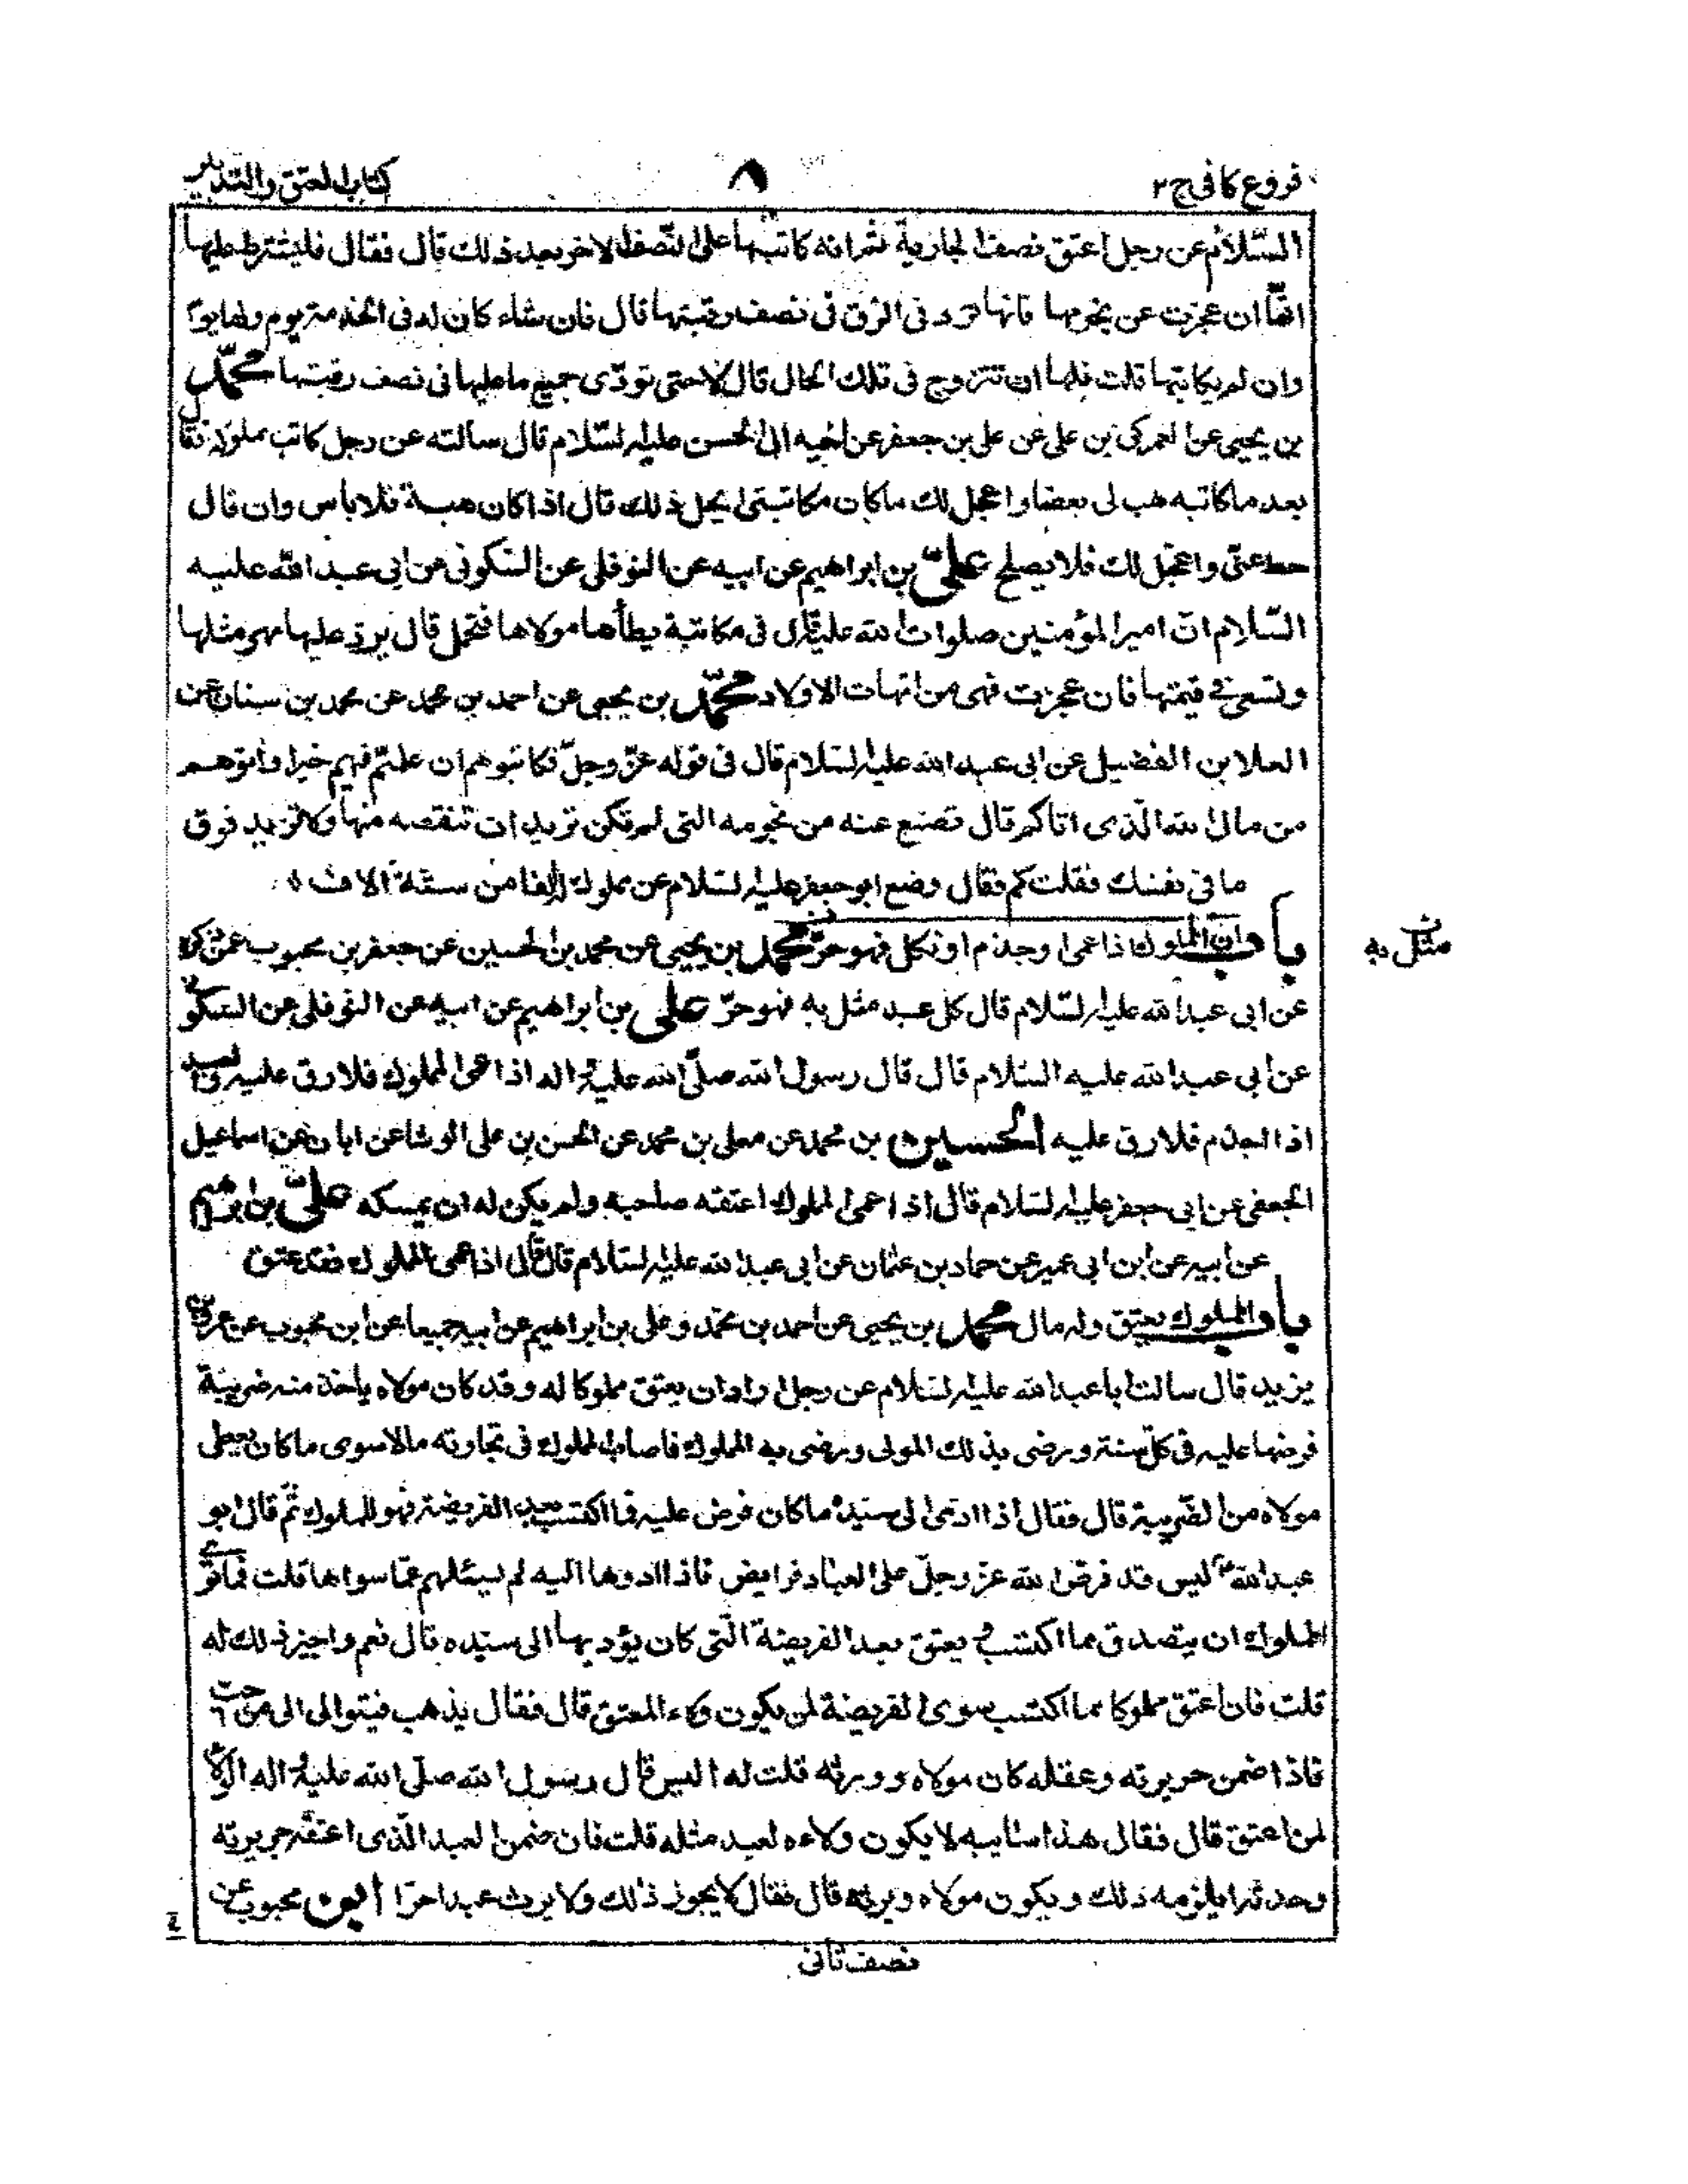 فروع كافى ج ٢
٨
كتاب العتق والتدبير
السّلام عن رجل اعتق نصف الجارية ثم انه كاتبها على النّصف الاخر بعد ذلك قال فقال فليشترط عليها
انّها ان عجزت عن نجومها فانها ترد فى الرق فى نصف رقبتها قال فان شاء كان له فى الخدمة يوم ولها يوم
وان لم يكاتبها قلت فلها ان تتزوج فى تلك الحال قال لا حتى تودّى جميع ما عليها فى نصف رقبتها محمّد
بن يحيى عن العمركى بن على عن على بن جعفر عن اخيه ابى الحسن عليه السّلام قال سالته عن رجل كاتب مملوكه فقال
بعد ما كاتبه هب لى بعضا واعجل لك ما كان مكاتبتى ايحل ذلك قال اذا كان هبة فلا باس وان قال
حط عنّى واعجّل لك فلا يصلح علىّ بن ابراهيم عن ابيه عن النوفلى عن السّكونى عن ابى عبد الله عليه
السّلام انّ امير المؤمنين صلوات الله عليه قال فى مكاتبة يطأها مولاها فتحمل قال يرد عليها مهر مثلها
وتسعى فى قيمتها فان عجزت فهى من امّهات الاولاد محمّد بن يحيى عن احمد بن محمد عن محمد بن سنان عن
العلا بن الفضيل عن ابى عبد الله عليه السّلام قال فى قوله عزّ وجلّ فكاتبوهم ان علمتم فيهم خيرا وآتوهم
من مال الله الّذى اتاكم قال تضع عنه من نجومه التى لم تكن تريد ان تنقصه منها ولا تزيد فوق
ما فى نفسك فقلت كم فقال وضع ابو جعفر عليه السّلام عن مملوك الفا من ستّة الاف
باب ان المملوك اذا عمى او جذم او نكل فهو حرّ محمّد بن يحيى عن محمد بن الحسين عن جعفر بن محبوب عمّن ذكره
مثّل به
عن ابى عبد الله عليه السّلام قال كل عبد مثل به فهو حرّ على بن ابراهيم عن ابيه عن النوفلى عن السكونى
عن ابى عبد الله عليه السّلام قال قال رسول الله صلّى الله عليه واله اذا عمى المملوك فلا رق عليه والعبد
اذا اجذم فلا رق عليه الحسين بن محمد عن معلى بن محمد عن الحسن بن على الوشا عن ابان عن اسماعيل
الجعفى عن ابى جعفر عليه السّلام قال اذا عمى المملوك اعتقه صاحبه ولم يكن له ان يمسكه علىّ بن ابرهيم
عن ابيه عن ابن ابى عمير عن حماد بن عثمان عن ابى عبد الله عليه السّلام قال قال اذا عمى المملوك فقد عتق
باب المملوك يعتق وله مال محمّد بن يحيى عن احمد بن محمّد وعلى بن ابراهيم عن ابيه جميعا عن ابن محبوب عن عمر بن
يزيد قال سالت ابا عبد الله عليه السّلام عن رجل اراد ان يعتق مملوكا له وقد كان مولاه ياخذ منه ضريبة
فرضها عليه فى كلّ سنة ورضى بذلك المولى ورضى به المملوك فاصاب المملوك فى تجارته مالا سوى ما كان يعطى
مولاه من الضّريبة قال فقال اذا ادى الى سيّده ما كان فرض عليه فما اكتسب بعد الفريضة فهو للمملوك ثمّ قال ابو
عبد الله ع اليس قد فرض الله عزّ وجلّ على العباد فرايض فاذا ادوها اليه لم يسئلهم عمّا سواها قلت فما ترى
للمملوك ان يتصدق مما اكتسب ويعتق بعد الفريضة الّتى كان يؤديها الى سيّده قال نعم واجيز ذلك له
قلت فان اعتق مملوكا مما اكتسب سوى الفريضة لمن يكون ولاء المعتق قال فقال يذهب فيتوالى الى من احب
فاذا ضمن جريرته وعقله كان مولاه وورثه قلت له اليس قال رسول الله صلّى الله عليه واله الولاء
لمن اعتق قال فقال هذا سايبه لا يكون ولاءه لعبد مثله قلت فان ضمن العبد الّذى اعتقه جريرته
وحدثه ايلزمه ذلك ويكون مولاه ويرثه قال فقال لا يجوز ذلك ولا يرث عبد احرّا ابن محبوب عن
نصف ثانى